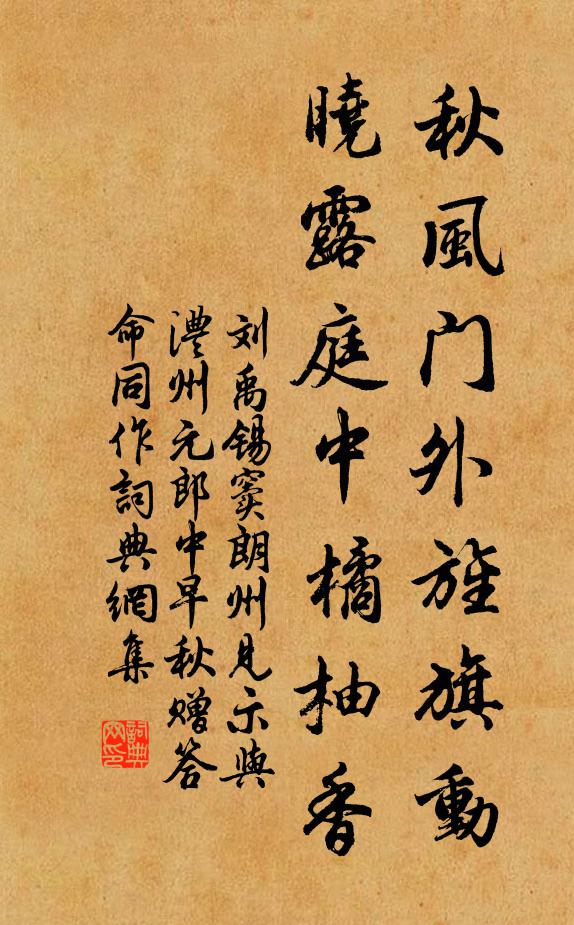 秋風门外旌旗動
曉露庭中橘柚香
刘禹锡窦朗州見示與
澧州元郎中早秋赠答
命同作詞典網集
詞典
网印